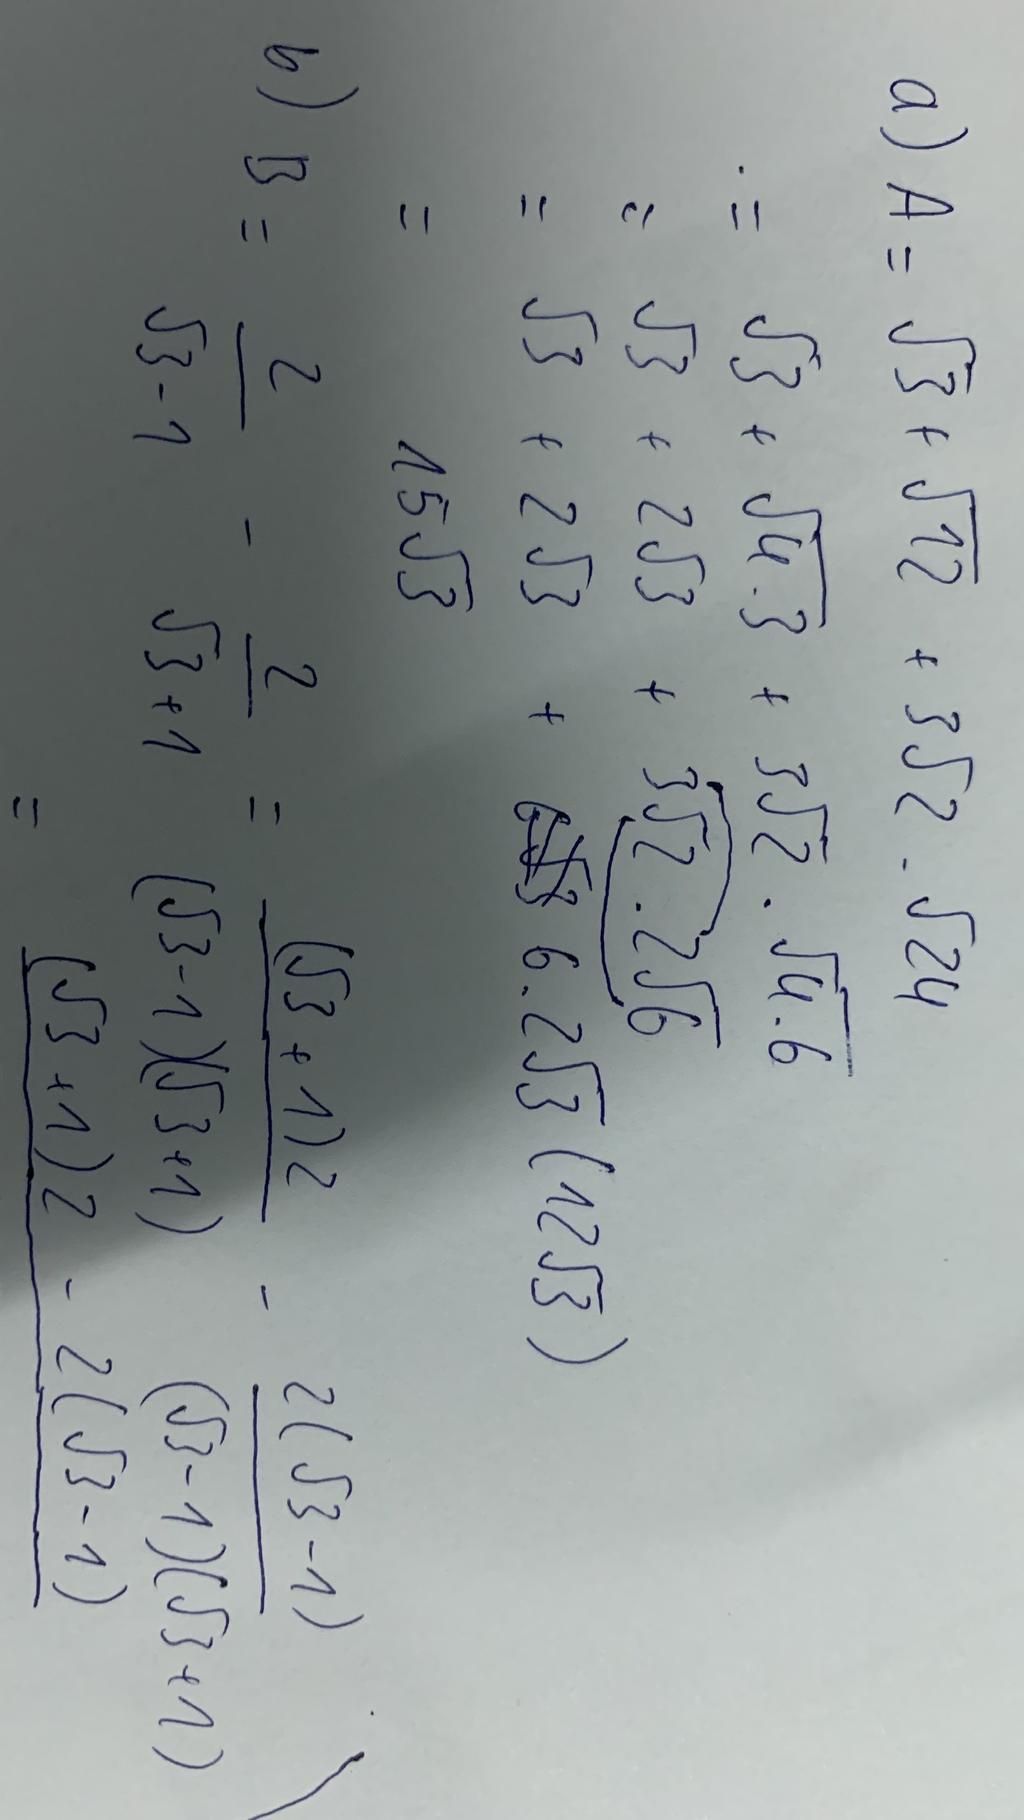 a) A = √3 + √12 + 3√2 . √24
= √3 + √4.3 + 3√2 . √4.6
= √3 + 2√3 + 3√2 . 2√6
= √3 + 2√3 + 6.2√3 (12√3)
= 15√3
b) B = 2/(√3-1) - 2/(√3+1) = (√3+1)2/(√3-1)(√3+1) - 2(√3-1)/(√3-1)(√3+1)
= (√3+1)2 - 2(√3-1)